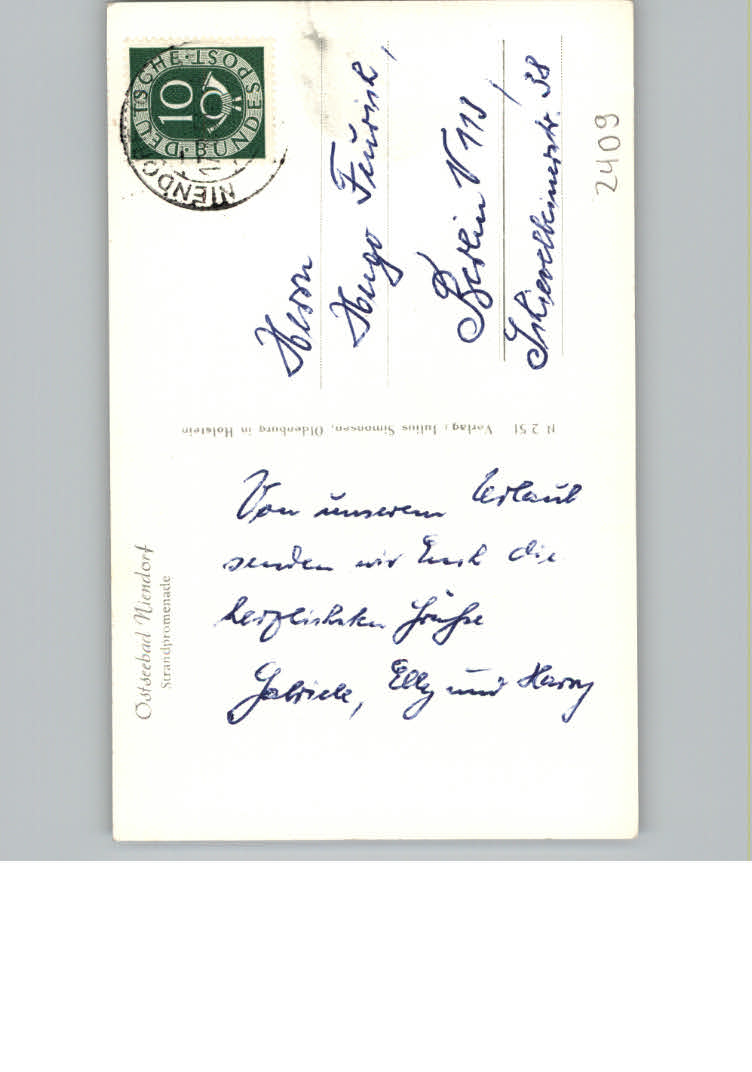 Ostseebad Niendorf
Strandpromenade
Von unserem Urlaub
senden wir Euch die
herzlichsten Grüße
Gabriele, Elly und Harry
N 2 51 Verlag: Julius Simonsen, Oldenburg in Holstein
DEUTSCHE BUNDESPOST
10
NIENDO
Herrn
Hugo
Berlin N 113
Schivelbeinerstr. 38
2409